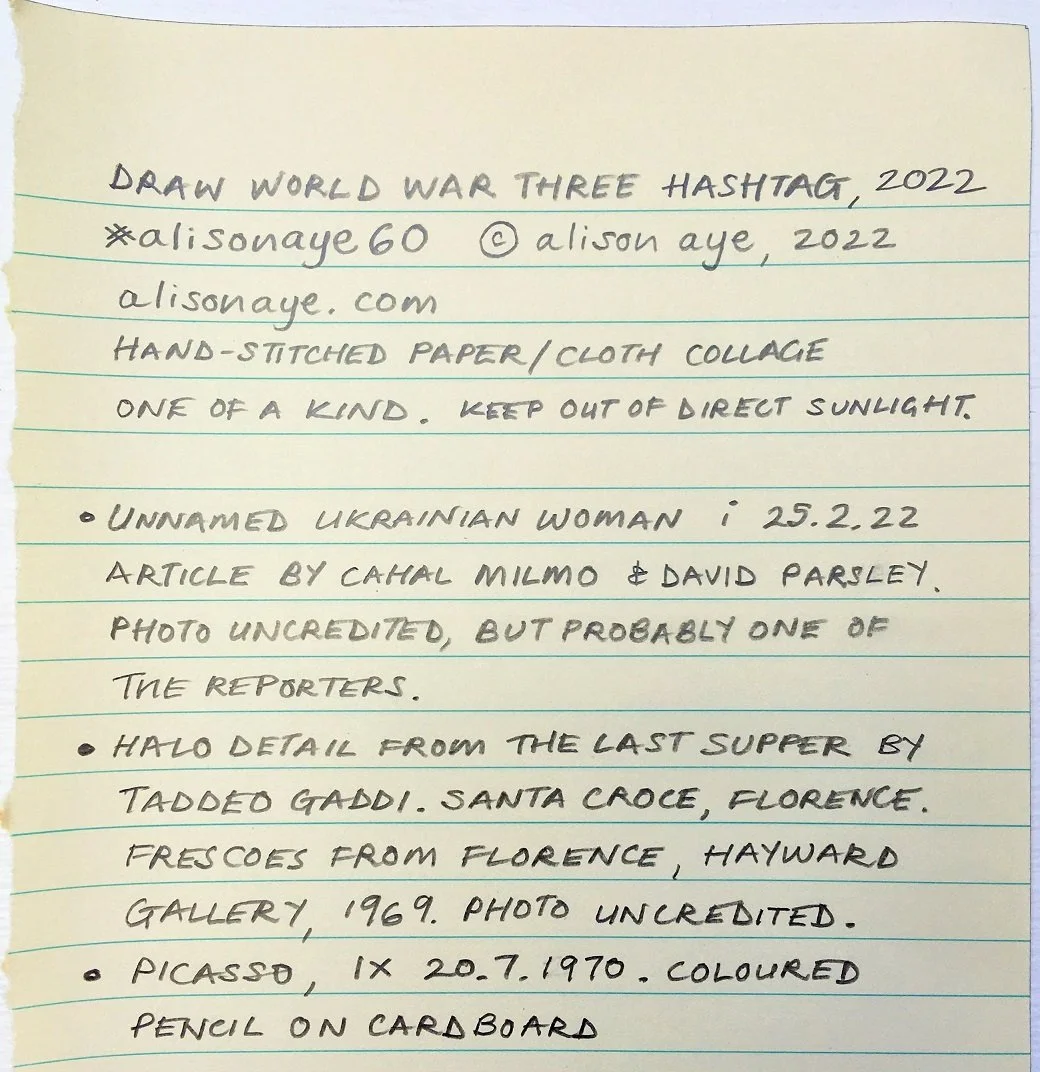 DRAW WORLD WAR THREE HASHTAG, 2022
#alisonaye60 © alison aye, 2022
alisonaye.com
HAND-STITCHED PAPER/CLOTH COLLAGE
ONE OF A KIND. KEEP OUT OF DIRECT SUNLIGHT.
• UNNAMED UKRAINIAN WOMAN i 25.2.22
ARTICLE BY CAHAL MILMO & DAVID PARSLEY.
PHOTO UNCREDITED, BUT PROBABLY ONE OF
THE REPORTERS.
• HALO DETAIL FROM THE LAST SUPPER BY
TADDEO GADDI. SANTA CROCE, FLORENCE.
FRESCOES FROM FLORENCE, HAYWARD
GALLERY, 1969. PHOTO UNCREDITED.
• PICASSO, IX 20.7.1970. COLOURED
PENCIL ON CARDBOARD